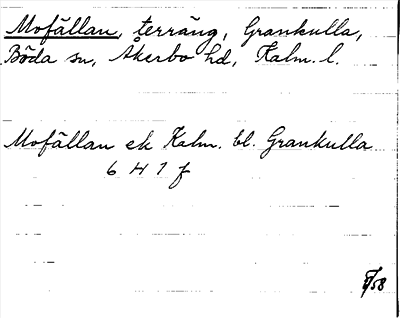 Mofällan, terräng, Grankulla,
Böda sn, Åkerbo hd, Kalm. l.
Mofällan ek Kalm. bl. Grankulla
6 H 1 f
/58